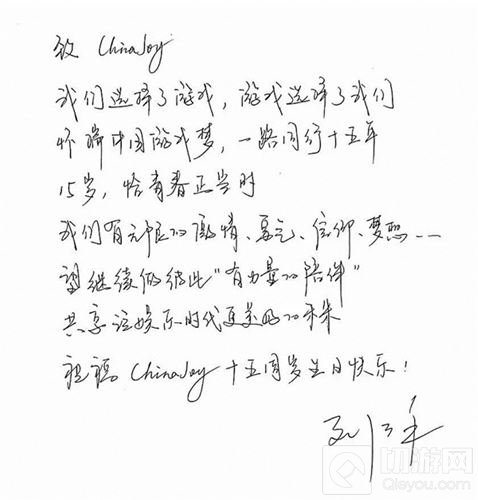 致 ChinaJoy
我们选择了游戏，游戏选择了我们
怀揣中国游戏梦，一路同行十五年
15岁，恰青春正当时
我们有无限的激情、勇气、信仰、梦想……
望继续做彼此“有力量的陪伴”
共享泛娱乐时代更美好的未来
祝福 ChinaJoy 十五周岁生日快乐！
切游网
Qieyou.com